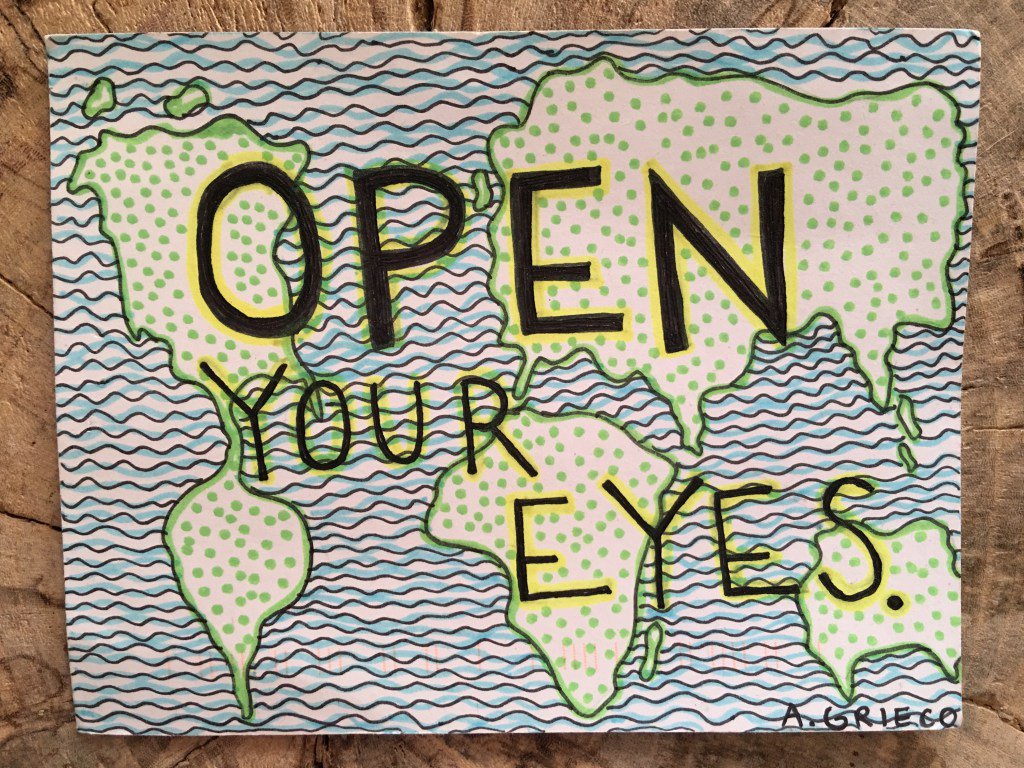 OPEN
YOUR
EYES.
A. GRIECO